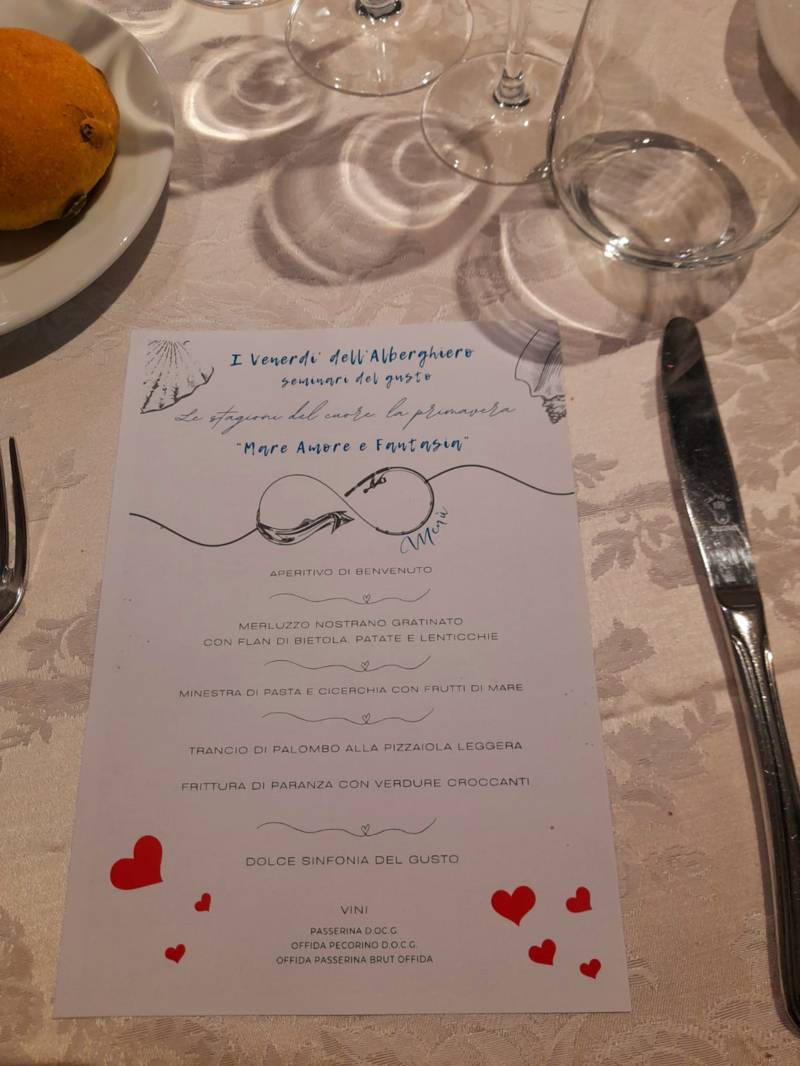 I Venerdi' dell'Alberghiero
seminari del gusto
Le stagioni del cuore: la primavera
"Mare Amore e Fantasia"
Menù
APERITIVO DI BENVENUTO
MERLUZZO NOSTRANO GRATINATO
CON FLAN DI BIETOLA, PATATE E LENTICCHIE
MINESTRA DI PASTA E CICERCHIA CON FRUTTI DI MARE
TRANCIO DI PALOMBO ALLA PIZZAIOLA LEGGERA
FRITTURA DI PARANZA CON VERDURE CROCCANTI
DOLCE SINFONIA DEL GUSTO
VINI
PASSERINA D.OC.G.
OFFIDA PECORINO D.O.C.G.
OFFIDA PASSERINA BRUT OFFIDA